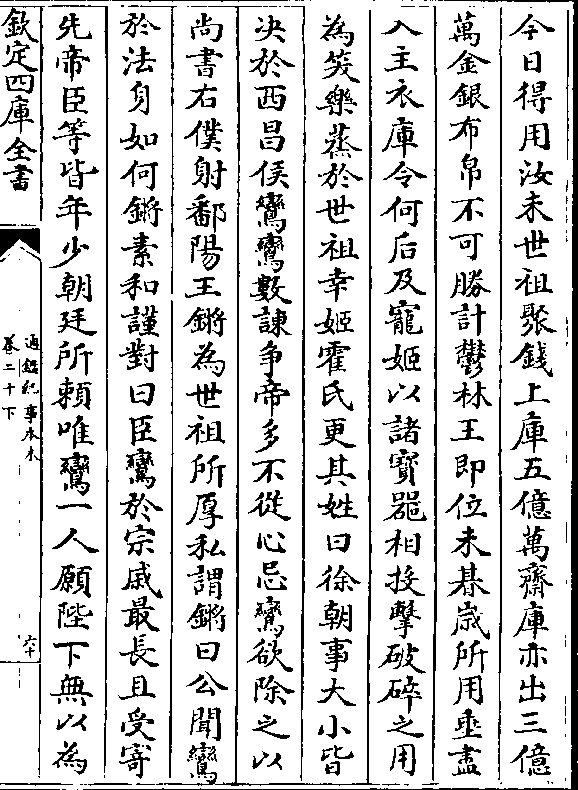 今日得用汝未世祖聚錢上庫五億萬齋庫亦出三億
萬金銀布帛不可勝計鬱林王即位未朞歳所用垂盡
入主衣庫令何后及寵姬以諸寳噐相投擊破碎之用
為笑樂蒸於世祖幸姬霍氏更其姓曰徐朝事大小皆
决於西昌侯鸞鸞數諫争帝多不從心忌鸞欲除之以
尚書右僕射鄱陽王鏘為世祖所厚私謂鏘曰公聞鸞
於法身如何鏘素和謹對曰臣鸞於宗戚最長且受寄
先帝臣等皆年少朝廷所賴唯鸞一人願陛下無以為
欽定四庫全書
通鑑紀事本末
卷二十下
六十